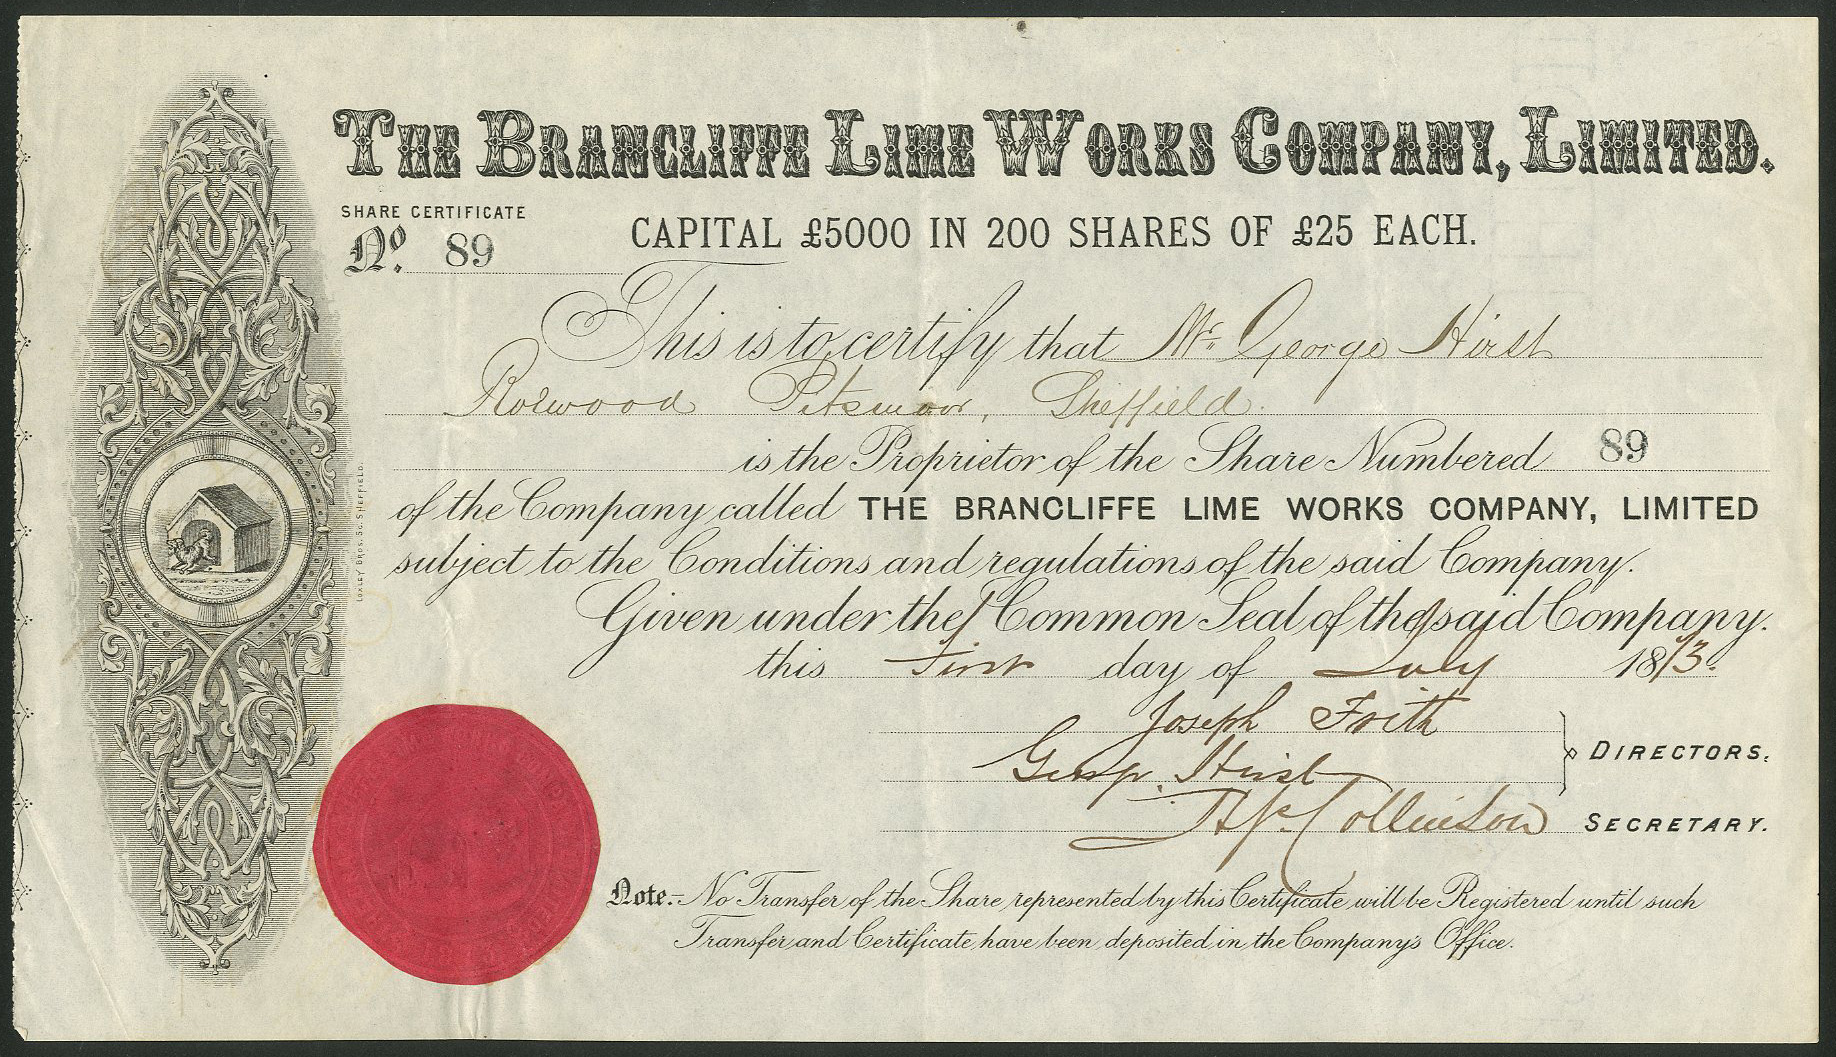 THE BRANCLIFFE LIME WORKS COMPANY, LIMITED.
SHARE CERTIFICATE
No. 89
CAPITAL £5000 IN 200 SHARES OF £25 EACH.
This is to certify that Mr. George Hirst
Pitsmoor, Sheffield.
is the Proprietor of the Share Numbered 89
of the Company called THE BRANCLIFFE LIME WORKS COMPANY, LIMITED
subject to the Conditions and regulations of the said Company.
Given under the Common Seal of the said Company.
this First day of July 1873.
Joseph Frith
Geo. Hirst
DIRECTORS.
Collinson
SECRETARY.
Note:- No Transfer of the Share represented by this Certificate will be Registered until such
Transfer and Certificate have been deposited in the Company's Office.
LOXLEY BROS. Sc. SHEFFIELD.